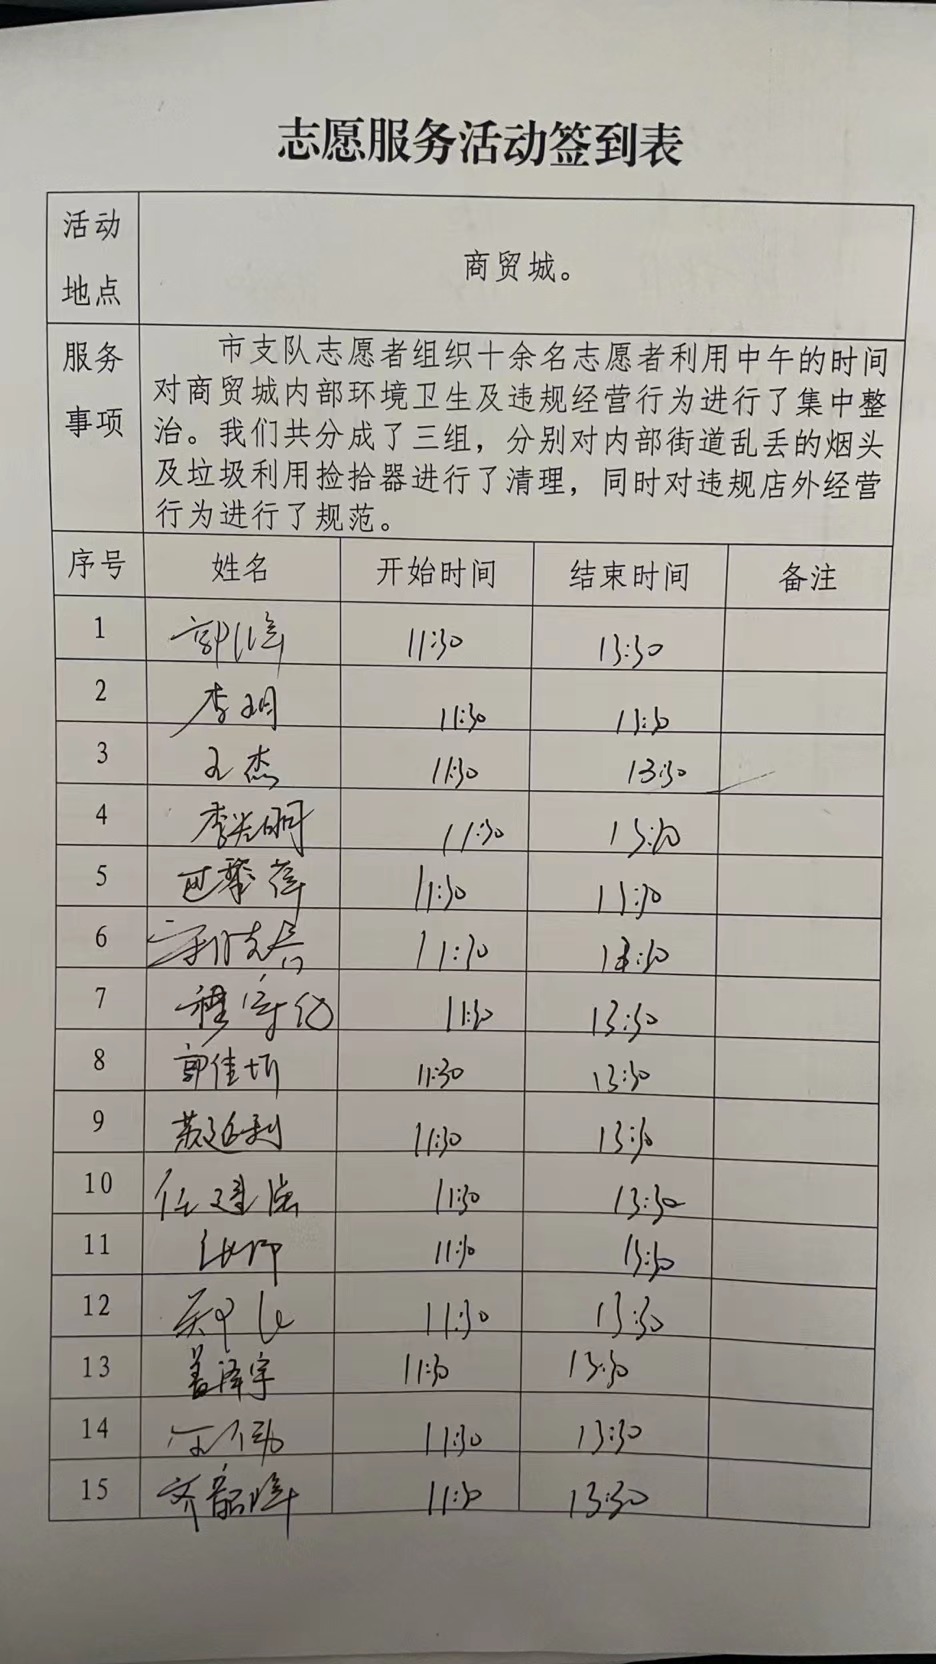 志愿服务活动签到表
活动地点
商贸城。
服务事项
市支队志愿者组织十余名志愿者利用中午的时间
对商贸城内部环境卫生及违规经营行为进行了集中整
治。我们共分成了三组，分别对内部街道乱丢的烟头
及垃圾利用捡拾器进行了清理，同时对违规店外经营
行为进行了规范。
序号 姓名 开始时间 结束时间 备注
1 11:30 13:30
2 李明 11:30 13:30
3 王杰 11:30 13:30
4 李光明 11:30 13:30
5 11:30 13:30
6 11:30 13:30
7 11:30 13:30
8 郭佳圻 11:30 13:30
9 11:30 13:30
10 任建 11:30 13:30
11 11:30 13:30
12 11:30 13:30
13 盖泽宇 11:30 13:30
14 11:30 13:30
15 齐韶峰 11:30 13:30